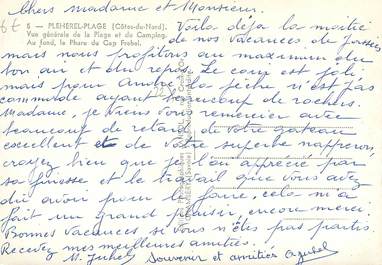 Chers madame et Monsieur.
6 - PLEHEREL-PLAGE (Côtes-du-Nord).
Vue générale de la Plage et du Camping.
Au fond, le Phare du Cap Frehel.
Voila déja la moitié
de nos vacances de passées
mais nous profitons au maximum du
bon air et du repos. Le coin est joli
mais pour André la pêche n'est pas
commode ayant beaucoup de rochers.
Madame, je viens vous remercier avec
beaucoup de retard de votre gateau
excellent et de votre superbe napperon,
croyez bien que je l'ai apprécié par
sa finesse et le travail que vous avez
dû avoir pour le faire, cela m'a
fait un grand plaisir, encore merci.
Bonnes vacances si vous n'êtes pas partis.
Recevez mes meilleures amitiés.
Souvenir et amitiés